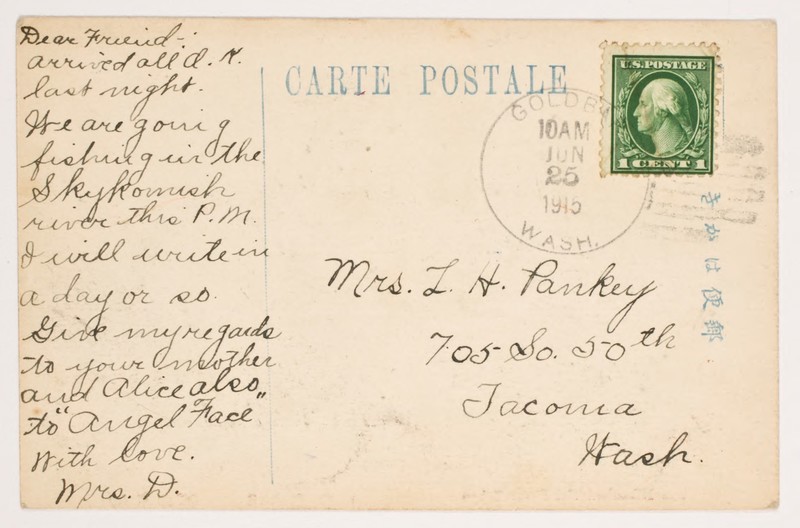 Dear Friend:
arrived all O.K.
last night.
We are going
fishing in the
Skykomish
river this P.M.
I will write in
a day or so.
Give my regards
to your mother
and Alice also
to "Angel Face"
With love.
Mrs. D.
CARTE POSTALE
U.S. POSTAGE
1 CENT 1
10AM
JUN
25
1915
WASH.
Mrs. L. H. Pankey
705 So. 50th
Tacoma
Wash.
きかは便郵